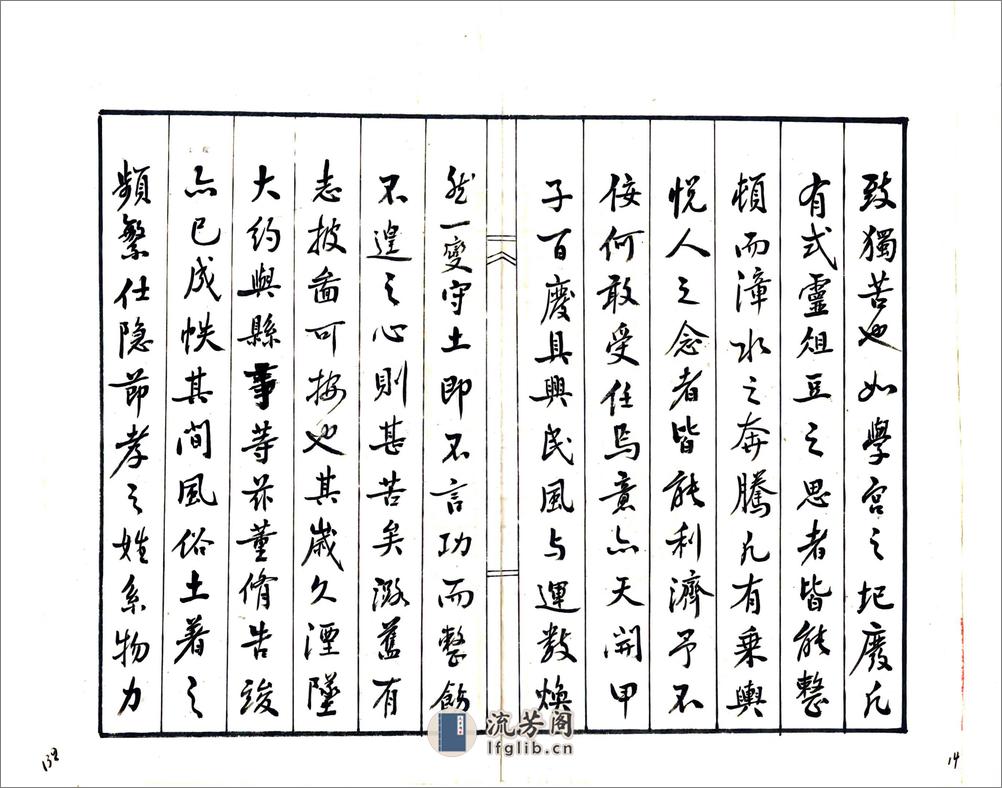 致獨苦也如學宮之圮廢凡
有式靈俎豆之思者皆能整
頓而漳水之奔騰凡有乗輿
悅人之念者皆能利濟予不
佞何敢受任焉意亦天開甲
子百慶具興民風与運數煥
然一變守土即不言功而整飭
不遑之心則甚苦矣潞舊有
志披啚可按也其歲久湮墜
大約與縣事等茲董脩告竣
亦已成帙其間風俗土著之
頻繁仕隐節孝之姓系物力
流芳阁
lfglib.cn
138
14